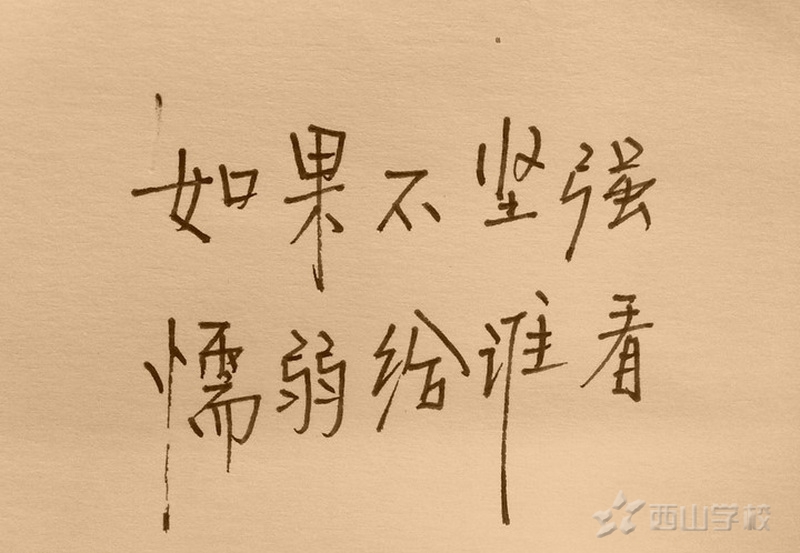 如果不坚强
懦弱给谁看
西山学校